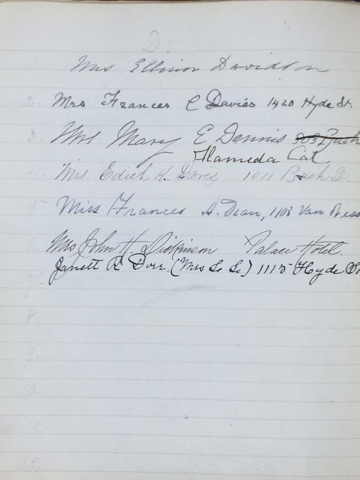 D.
Mrs Ellinor Davidson
2. Mrs Frances C Davies 1420 Hyde St.
3. Mrs Mary E Dennis
Alameda Cal
4. Mrs. Edith K. 1011 Bush St
5. Miss Frances A. Dean, 1103 Van Ness
Mrs John H. Dickinson Palace Hotel
Janett R Dorr. (Mrs L. L.) 1115 Hyde St
8.
9.
10.
11.
12.